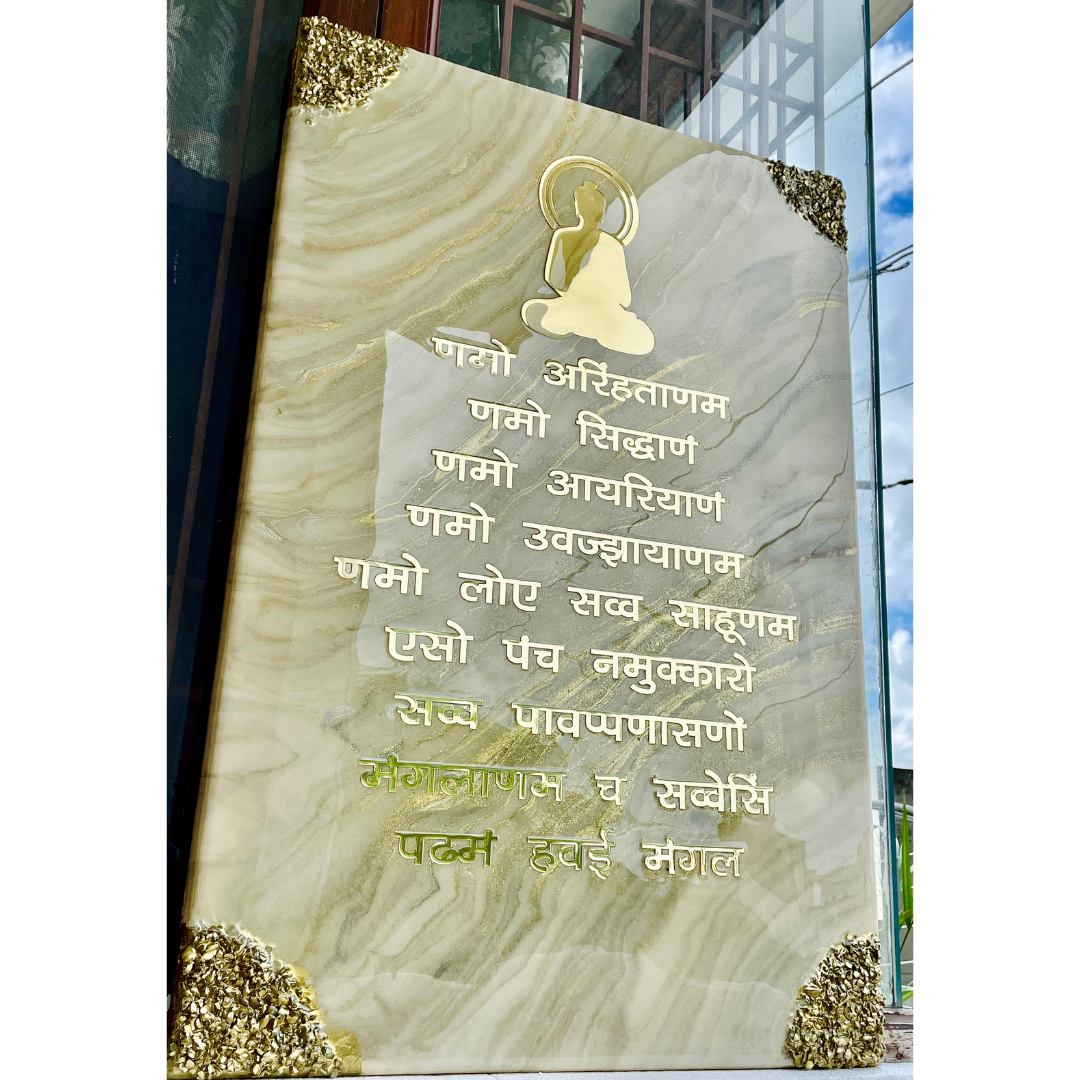 णमो अरिंहताणम
णमो सिद्धाणं
णमो आयरियाणं
णमो उवज्झायाणम
णमो लोए सव्व साहूणम
एसो पंच नमुक्कारो
सव्व पावप्पणासणों
मंगलाणम च सव्वेसिं
पढमं हवई मंगल